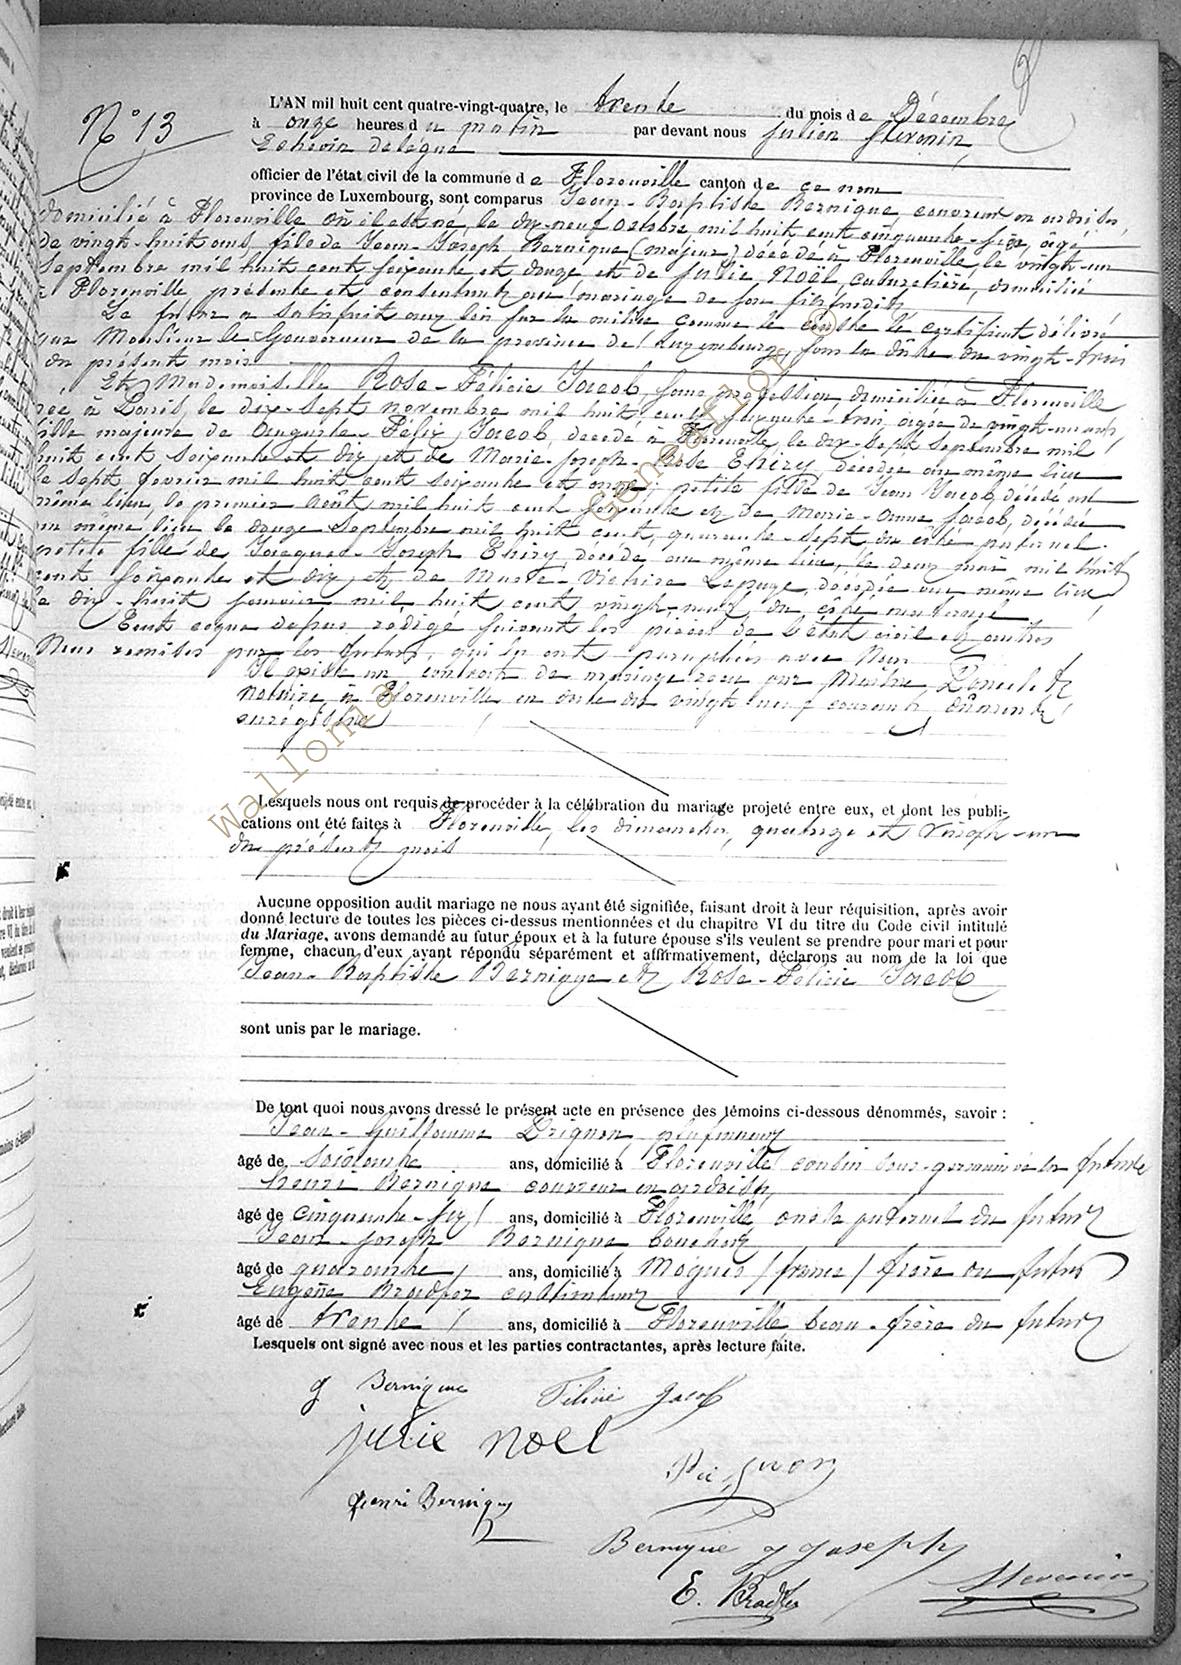 N° 13
L'AN mil huit cent quatre-vingt-quatre, le trente du mois de Décembre
à onze heures du matin par devant nous Julien Stevenin,
Echevin délégué
officier de l'état civil de la commune de Florenville canton de ce nom
province de Luxembourg, sont comparus Jean-Baptiste Bernique, couvreur en ardoises,
domicilié à Florenville où il est né, le dix-neuf octobre mil huit cent cinquante-six, âgé
de vingt-huit ans, fils de Jean-Joseph Bernique (majeur) décédé à Florenville le vingt-un
septembre mil huit cent soixante et douze et de Julie Noël, cabaretière, domiciliée
à Florenville présente et consentant au mariage de son fils susdit
Le futur a satisfait aux lois sur la milice comme le constate le certificat délivré
par Monsieur le Gouverneur de la province de Luxembourg, sous la date du vingt-trois
du présent mois
Et Mademoiselle Rose-Félicie Jacob, sans profession, domiciliée à Florenville
née à Paris, le dix-sept novembre mil huit cent soixante-trois, âgée de vingt-un ans
fille majeure de Auguste-Félix Jacob, décédé à Florenville le dix-sept septembre mil
huit cent soixante et dix, et de Marie-Joseph-Rose Thiry, décédée au même lieu
le sept février mil huit cent soixante et onze; petite fille de Jean Jacob, décédé au
même lieu, le premier août mil huit cent soixante et de Marie-Anne Jacob, décédée
au même lieu le douze septembre mil huit cent quarante-sept, du côté paternel.
petite fille de Jacques-Joseph Thiry, décédé, au même lieu, le deux mai mil huit
cent soixante et dix, et de Marie-Victoire Lepage, décédée au même lieu
le dix-huit janvier mil huit cent vingt-neuf, du côté maternel
Tout ce que dessus rédigé suivant les pièces de l'état civil et autres
Nous remises par les futurs, qui les ont paraphées avec Nous
Il existe un contrat de mariage reçu par Maître
Notaire à Florenville en date du vingt neuf courant, dûment
enrégistré
Lesquels nous ont requis de procéder à la célébration du mariage projeté entre eux, et dont les publi-
cations ont été faites à Florenville, les dimanches, quatorze et vingt-un
du présent mois
Aucune opposition audit mariage ne nous ayant été signifiée, faisant droit à leur réquisition, après avoir
donné lecture de toutes les pièces ci-dessus mentionnées et du chapitre VI du titre du Code civil intitulé
du Mariage, avons demandé au futur époux et à la future épouse s'ils veulent se prendre pour mari et pour
femme, chacun d'eux ayant répondu séparément et affirmativement, déclarons au nom de la loi que
Jean-Baptiste Bernique et Rose-Félicie Jacob
sont unis par le mariage.
De tout quoi nous avons dressé le présent acte en présence des témoins ci-dessous dénommés, savoir :
Jean-Guillaume Prignon, plafonneur
âgé de soixante ans, domicilié à Florenville cousin sous-germain de la future
Henri Bernique couvreur en ardoises,
âgé de cinquante-six ans, domicilié à Florenville oncle paternel du futur
Jean-Joseph Bernique boucher
âgé de quarante ans, domicilié à Mogues (france) frère du futur
Eugène Bradfer cultivateur
âgé de trente ans, domicilié à Florenville beau-frère du futur
Lesquels ont signé avec nous et les parties contractantes, après lecture faite.
J Bernique Félicie Jacob
julie noel
Prignon
henri Bernique
Bernique J Joseph
E. Bradfer
Stevenin
Wallonia Geneaflor ©